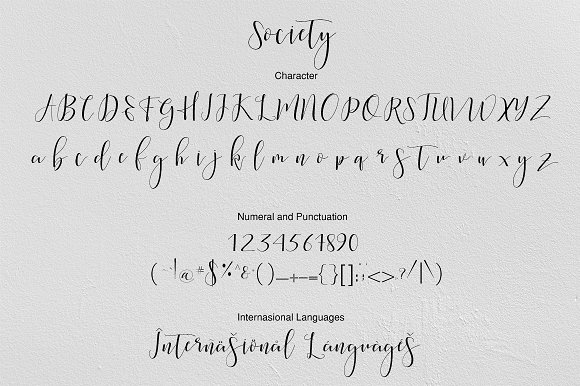 Society
Character
ABCDEFGHIJKLMNOPQRSTUVWXYZ
abcdefghijklmnopqrstuvwxyz
Numeral and Punctuation
1234567890
(~!@#$%^&*()_+-={}[]:;<>?/|\)
Internasional Languages
Înternäšiönäl Länguägéš